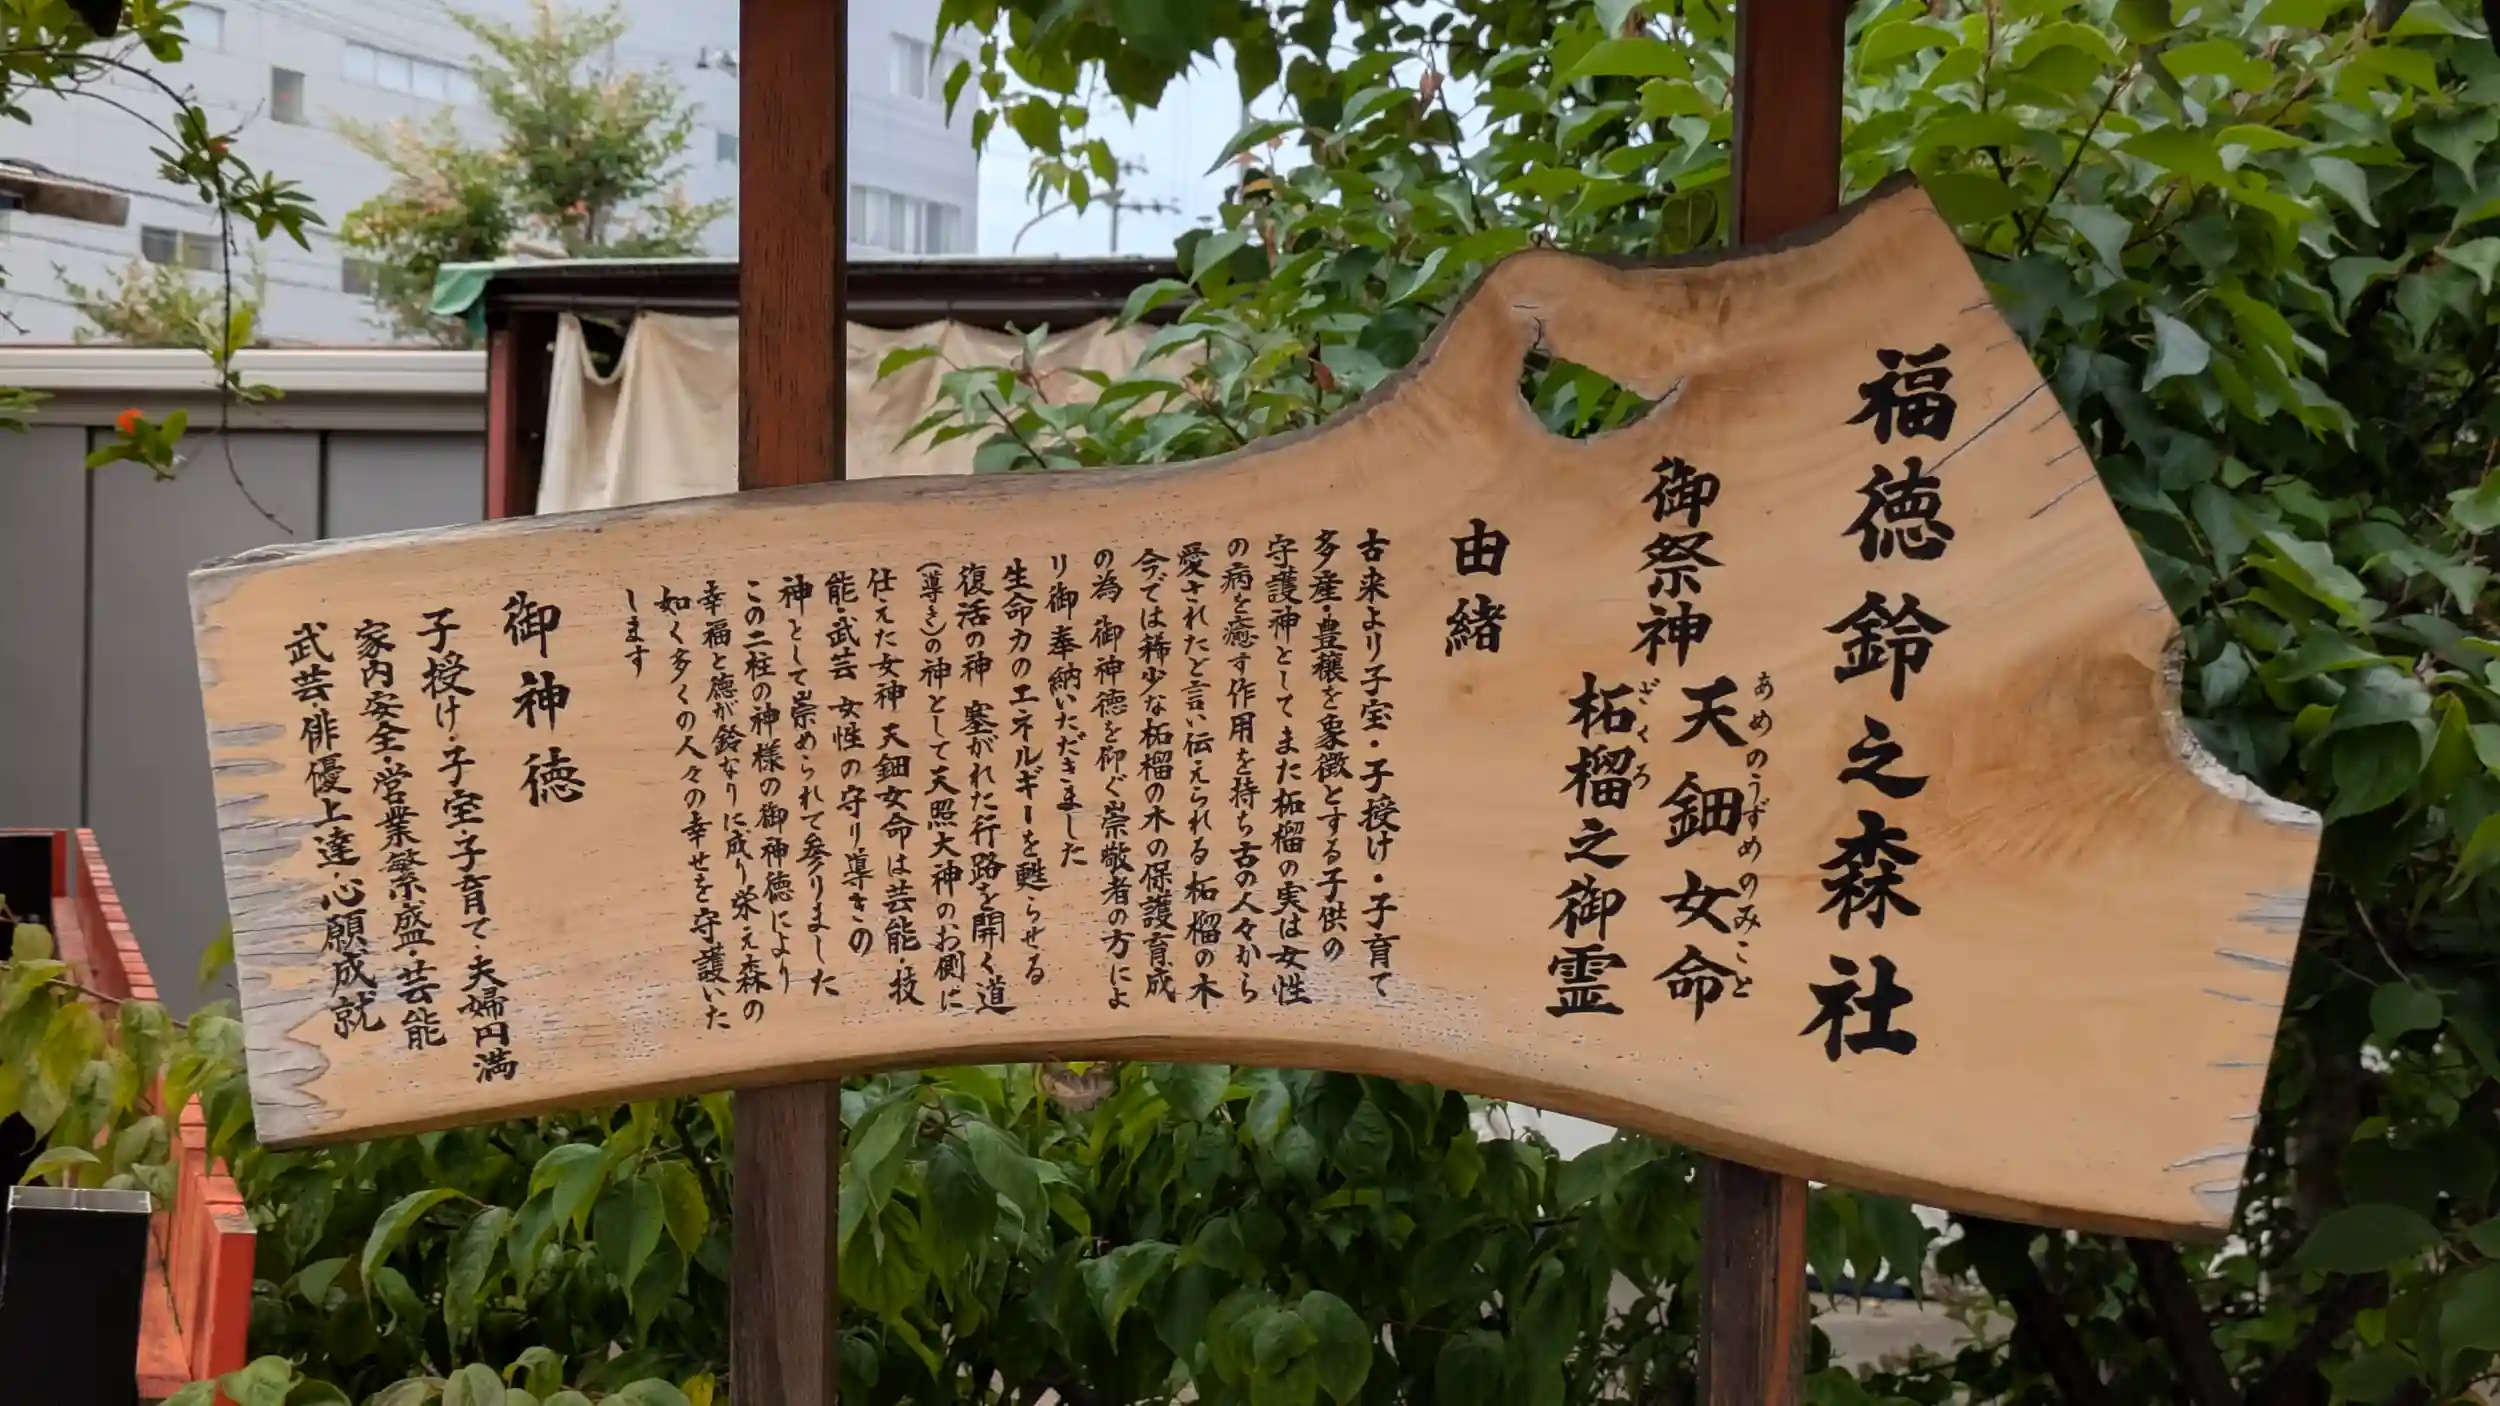 福徳鈴之森社
御祭神
あめのうずめのみこと
天鈿女命
ざくろ
柘榴之御霊
由緒
古来より子宝・子授け・子育て
多産・豊穣を象徴とする子供の
守護神としてまた柘榴の実は女性
の病を癒す作用を持ち古の人々から
愛されたと言い伝えられる柘榴の木
今では稀少な柘榴の木の保護育成
の為 御神徳を仰ぐ崇敬者の方によ
り御奉納いただきました
生命力のエネルギーを甦らせる
復活の神 塞がれた行路を開く道
(導き)の神として天照大神のお側に
仕えた女神 天鈿女命は芸能・技
能・武芸 女性の守り導きの
神として崇められて参りました
この二柱の神様の御神徳により
幸福と徳が鈴なりに成り栄え森の
如く多くの人々の幸せを守護いた
します
御神徳
子授け・子宝・子育て・夫婦円満
家内安全・営業繁盛・芸能
武芸・俳優上達・心願成就